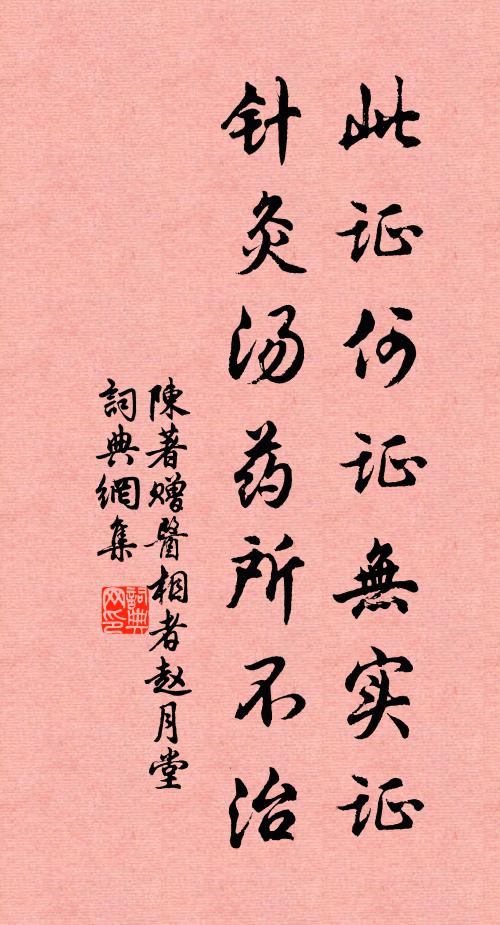 此证何证無实证
针灸汤药所不治
陳著赠醫相者赵月堂
詞典網集
詞典网印